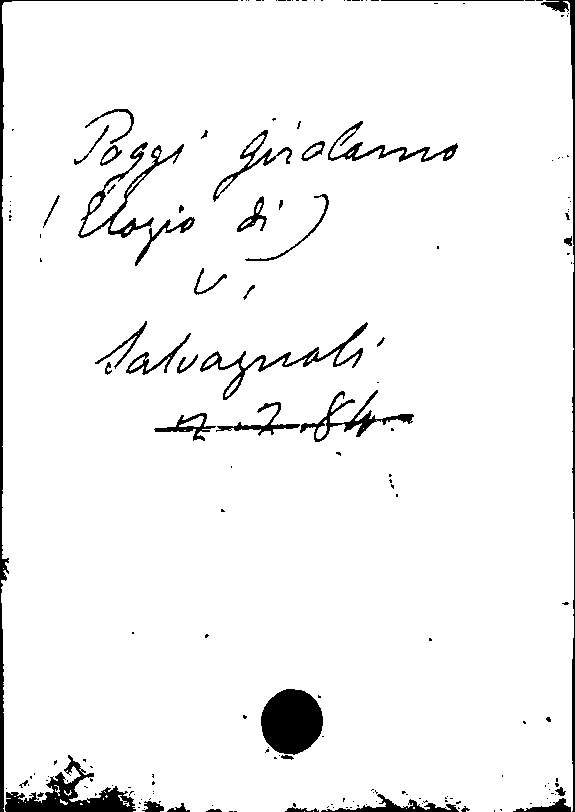 Poggi Girolamo
(Elogio di)
V.
Salvagnoli
n. 2. 84.